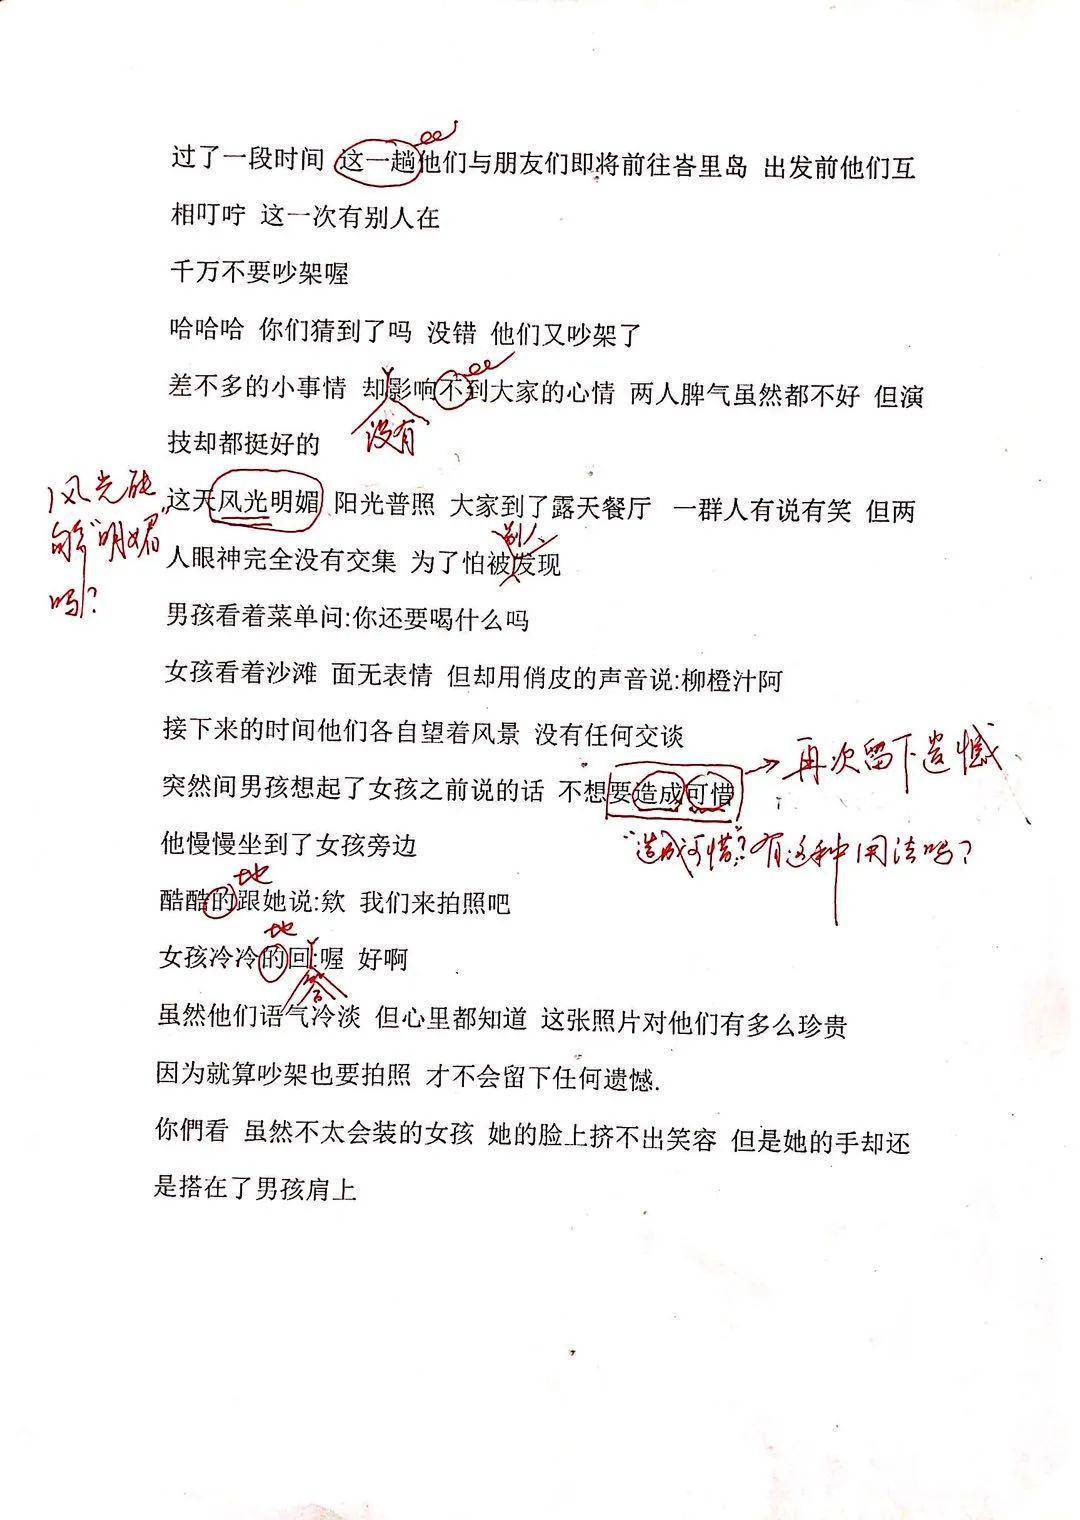 过了一段时间 这一趟他们与朋友们即将前往峇里岛 出发前他们互
相叮咛 这一次有别人在
千万不要吵架喔
哈哈哈 你们猜到了吗 没错 他们又吵架了
差不多的小事情 却影响不到大家的心情 两人脾气虽然都不好 但演
没有
技却都挺好的
风光能
够“明媚”
吗？
这天风光明媚 阳光普照 大家到了露天餐厅 一群人有说有笑 但两
别人
人眼神完全没有交集 为了怕被发现
男孩看着菜单问:你还要喝什么吗
女孩看着沙滩 面无表情 但却用俏皮的声音说:柳橙汁阿
接下来的时间他们各自望着风景 没有任何交谈
再次留下遗憾
突然间男孩想起了女孩之前说的话 不想要造成可惜
“造成可惜”？有这种用法吗？
他慢慢坐到了女孩旁边
地
酷酷的跟她说:欸 我们来拍照吧
地
女孩冷冷的回:喔 好啊
答
虽然他们语气冷淡 但心里都知道 这张照片对他们有多么珍贵
因为就算吵架也要拍照 才不会留下任何遗憾.
你們看 虽然不太会装的女孩 她的脸上挤不出笑容 但是她的手却还
是搭在了男孩肩上